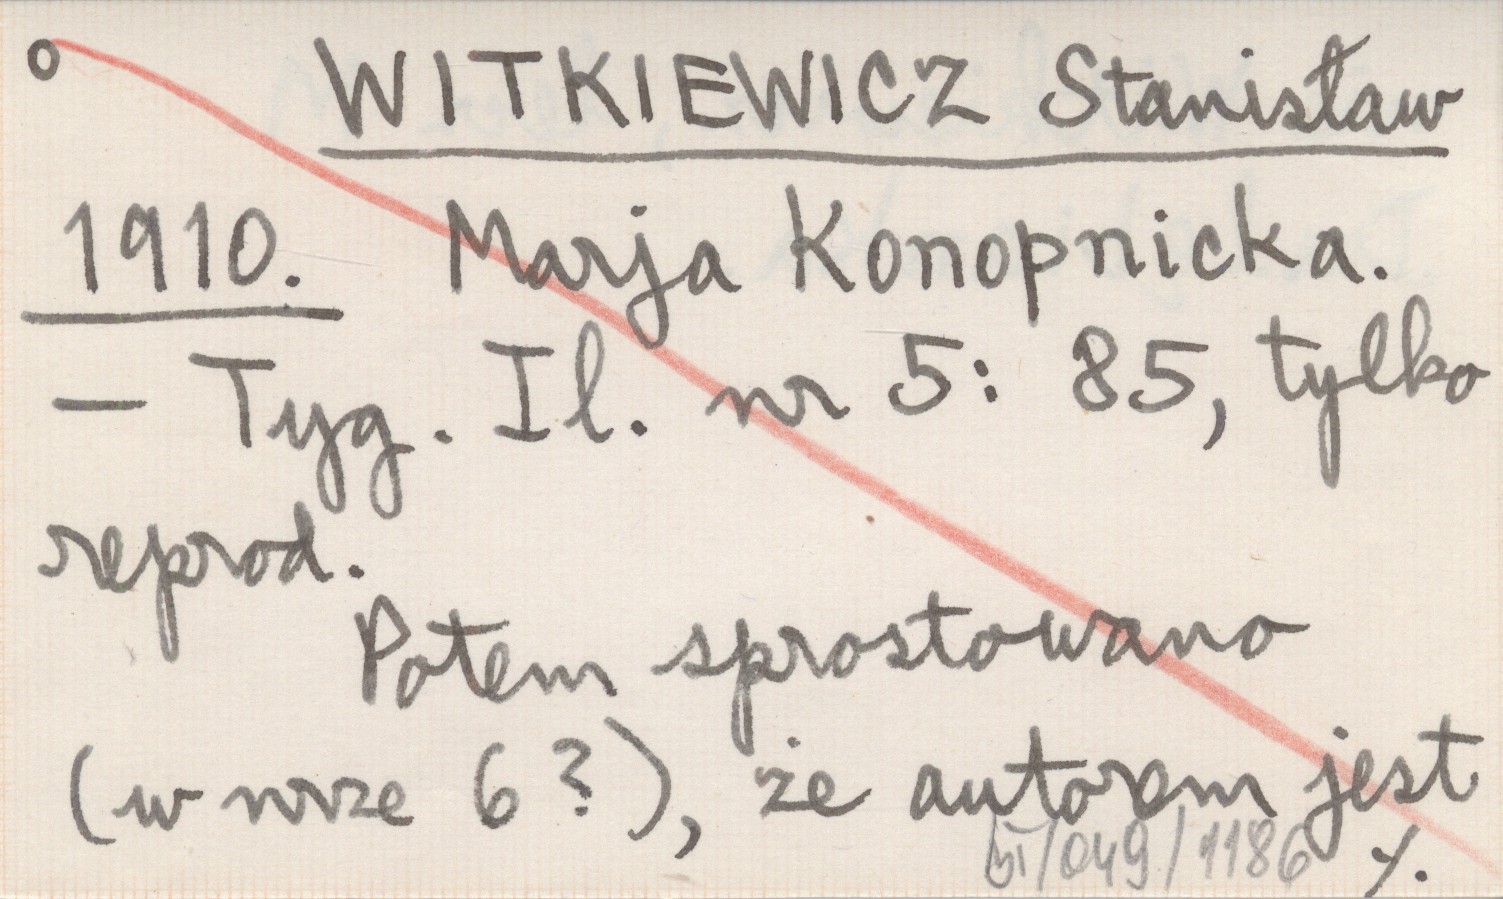 o WITKIEWICZ Stanisław
1910. Marja Konopnicka.
— Tyg. Il. nr 5: 85, tylko
reprod.
Potem sprostowano
(w nrze 6?), że autorem jest
/049/1186 ⁒